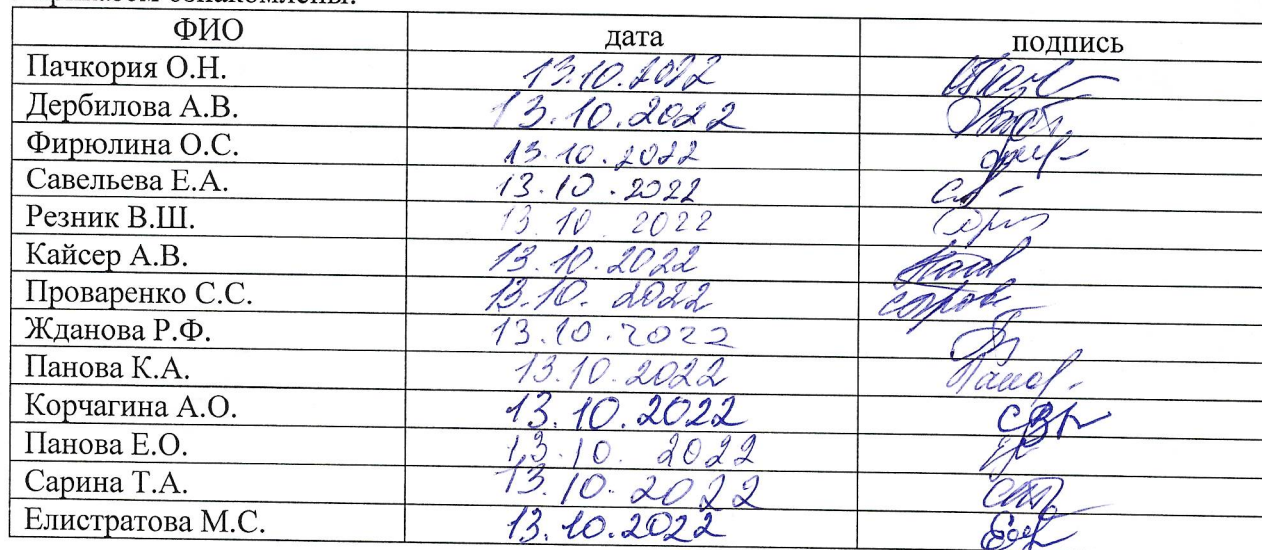 ознакомлены.
ФИО дата подпись
Пачкория О.Н. 13.10.2022
Дербилова А.В. 13.10.2022
Фирюлина О.С. 13.10.2022
Савельева Е.А. 13.10.2022
Резник В.Ш. 13.10.2022
Кайсер А.В. 13.10.2022
Проваренко С.С. 13.10.2022
Жданова Р.Ф. 13.10.2022
Панова К.А. 13.10.2022
Корчагина А.О. 13.10.2022
Панова Е.О. 13.10.2022
Сарина Т.А. 13.10.2022
Елистратова М.С. 13.10.2022